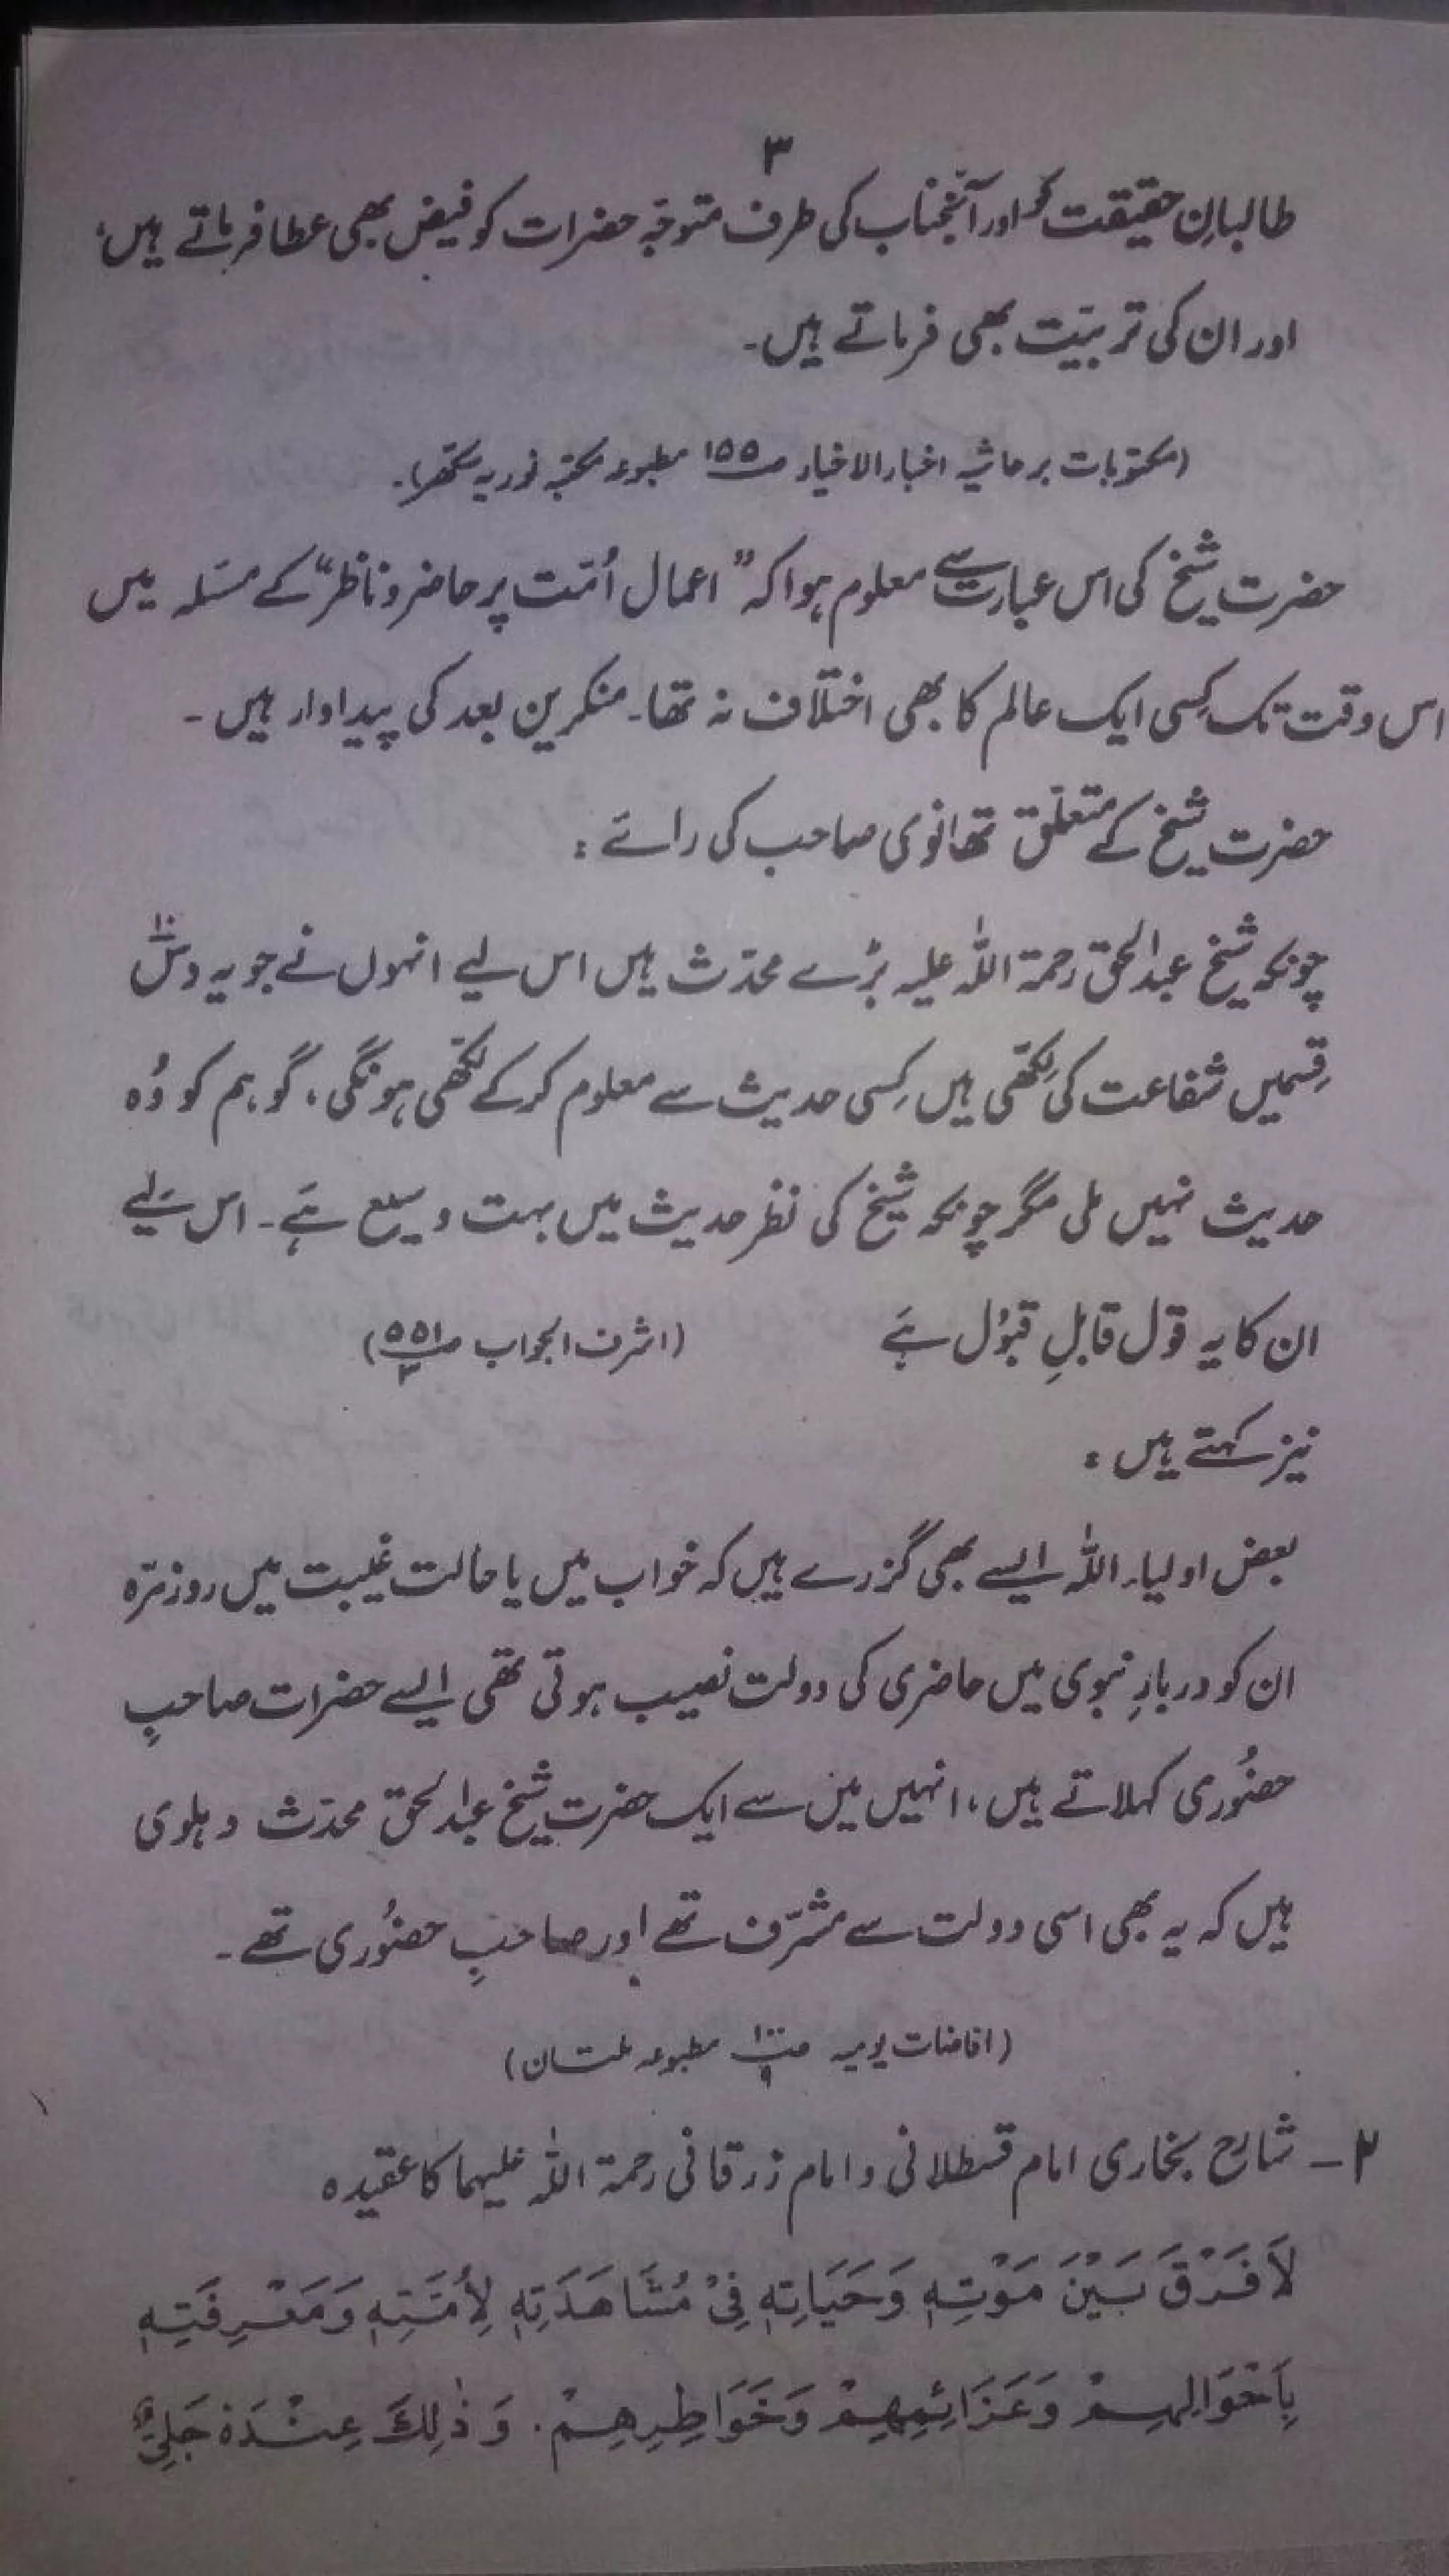 ۳
طالبانِ حقیقت کو اور آنجناب کی طرف متوجہ حضرات کو فیض بھی عطا فرماتے ہیں،
اور ان کی تربیّت بھی فرماتے ہیں۔
(مکتوبات برحاشیہ اخبار الاخیار ص۱۵۵ مطبوعہ مکتبہ نوریہ سکھر)۔
حضرت شیخ کی اس عبارت سے معلوم ہوا کہ ”اعمال اُمّت پر حاضر و ناظر“ کے مسئلہ میں
اس وقت تک کِسی ایک عالم کا بھی اختلاف نہ تھا۔ منکرین بعد کی پیداوار ہیں۔
حضرت شیخ کے متعلّق تھانوی صاحب کی رائے :
چونکہ شیخ عبدالحق رحمۃ اللہ علیہ بڑے محدّث ہیں اس لیے انہوں نے جو یہ دسؔ۱۰
قِسمیں شفاعت کی لِکھّی ہیں کِسی حدیث سے معلوم کر کے لکھّی ہونگی، گو ہم کو وُہ
حدیث نہیں ملی مگر چونکہ شیخ کی نظر حدیث میں بہت وسیع ہَے۔ اس لیے
ان کا یہ قول قابلِ قبوُل ہَے (اشرف الجواب ص۵۵۱/۳)
نیز کہتے ہیں :
بعض اولیاء اللہ ایسے بھی گزرے ہیں کہ خواب میں یا حالت غیبت میں روزمرّہ
ان کو دربارِ نبوی میں حاضری کی دولت نصیب ہوتی تھی ایسے حضرات صاحبِ
حضوُری کہلاتے ہیں، انہیں میں سے ایک حضرت شیخ عبدالحق محدّث دہلوی
ہیں کہ یہ بھی اسی دولت سے مشرّف تھے اور صاحبِ حضوُری تھے۔
(افاضات یومیہ ص۱۰۰/۹ مطبوعہ ملتان)
۲- شارح بخاری امام قسطلانی و امام زرقانی رحمۃ اللہ علیہما کا عقیدہ
لَا فَرْقَ بَيْنَ مَوْتِهٖ وَحَيَاتِهٖ فِيْ مُشَاهَدَتِهٖ لِاُمَّتِهٖ وَمَعْرِفَتِهٖ
بِاَحْوَالِهِمْ وَعَزَائِمِهِمْ وَخَوَاطِرِهِمْ. وَذٰلِكَ عِنْدَهٗ جَلِيٌّ